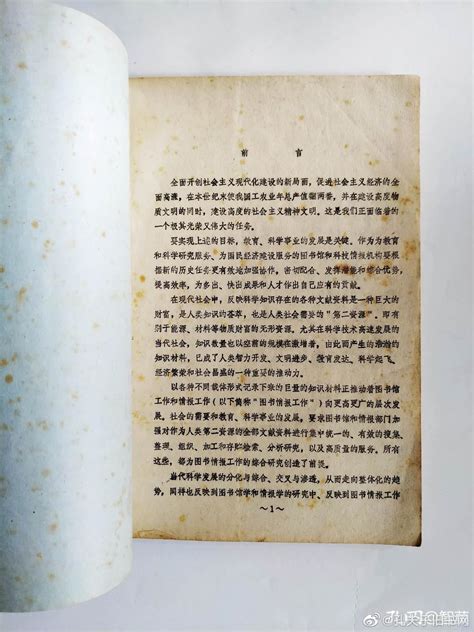 前 言
全面开创社会主义现代化建设的新局面，促进社会主义经济的全
面高涨，在本世纪末使我国工农业年总产值翻两番，并在建设高度物
质文明的同时，建设高度的社会主义精神文明。这是我们正面临着的
一个极其光荣又伟大的任务。
要实现上述的目标，教育、科学事业的发展是关键。作为为教育
和科学研究服务、为国民经济建设服务的图书馆和科技情报机构要根
据新的历史任务更有效地加强协作，密切配合、发挥潜能和综合优势，
提高效率，为多出、快出成果和人才作出自己应有的贡献。
在现代社会中，反映科学知识存在的各种文献资料是一种巨大的
财富，是人类知识的荟萃，也是人类社会需要的“第二资源”。即有
别于能源、材料等物质财富的无形资源。尤其在科学技术高速发展的
当代社会，知识数量也以空前的规模在激增着，由此而产生的浩瀚的
知识材料，已成了人类智力开发、文明进步、教育发达、科学起飞、
经济繁荣和社会昌盛的一种重要的推动力。
以各种不同载体形式记录下来的巨量的知识材料正推动着图书馆
工作和情报工作（以下简称“图书情报工作”）向更高更广的层次发
展。社会的需要和教育、科学事业的发展，要求图书馆和情报部门加
强对作为人类第二资源的全部文献资料进行集中统一的、有效的搜集、
整理、组织、加工和存贮检索、分析研究，以及高质量的服务。所有
这些，都为图书情报工作的综合研究创造了前提。
当代科学发展的分化与综合、交叉与渗透，从而走向整体化的趋
势，同样也反映到图书馆学和情报学的研究中、反映到图书情报工作
～1～